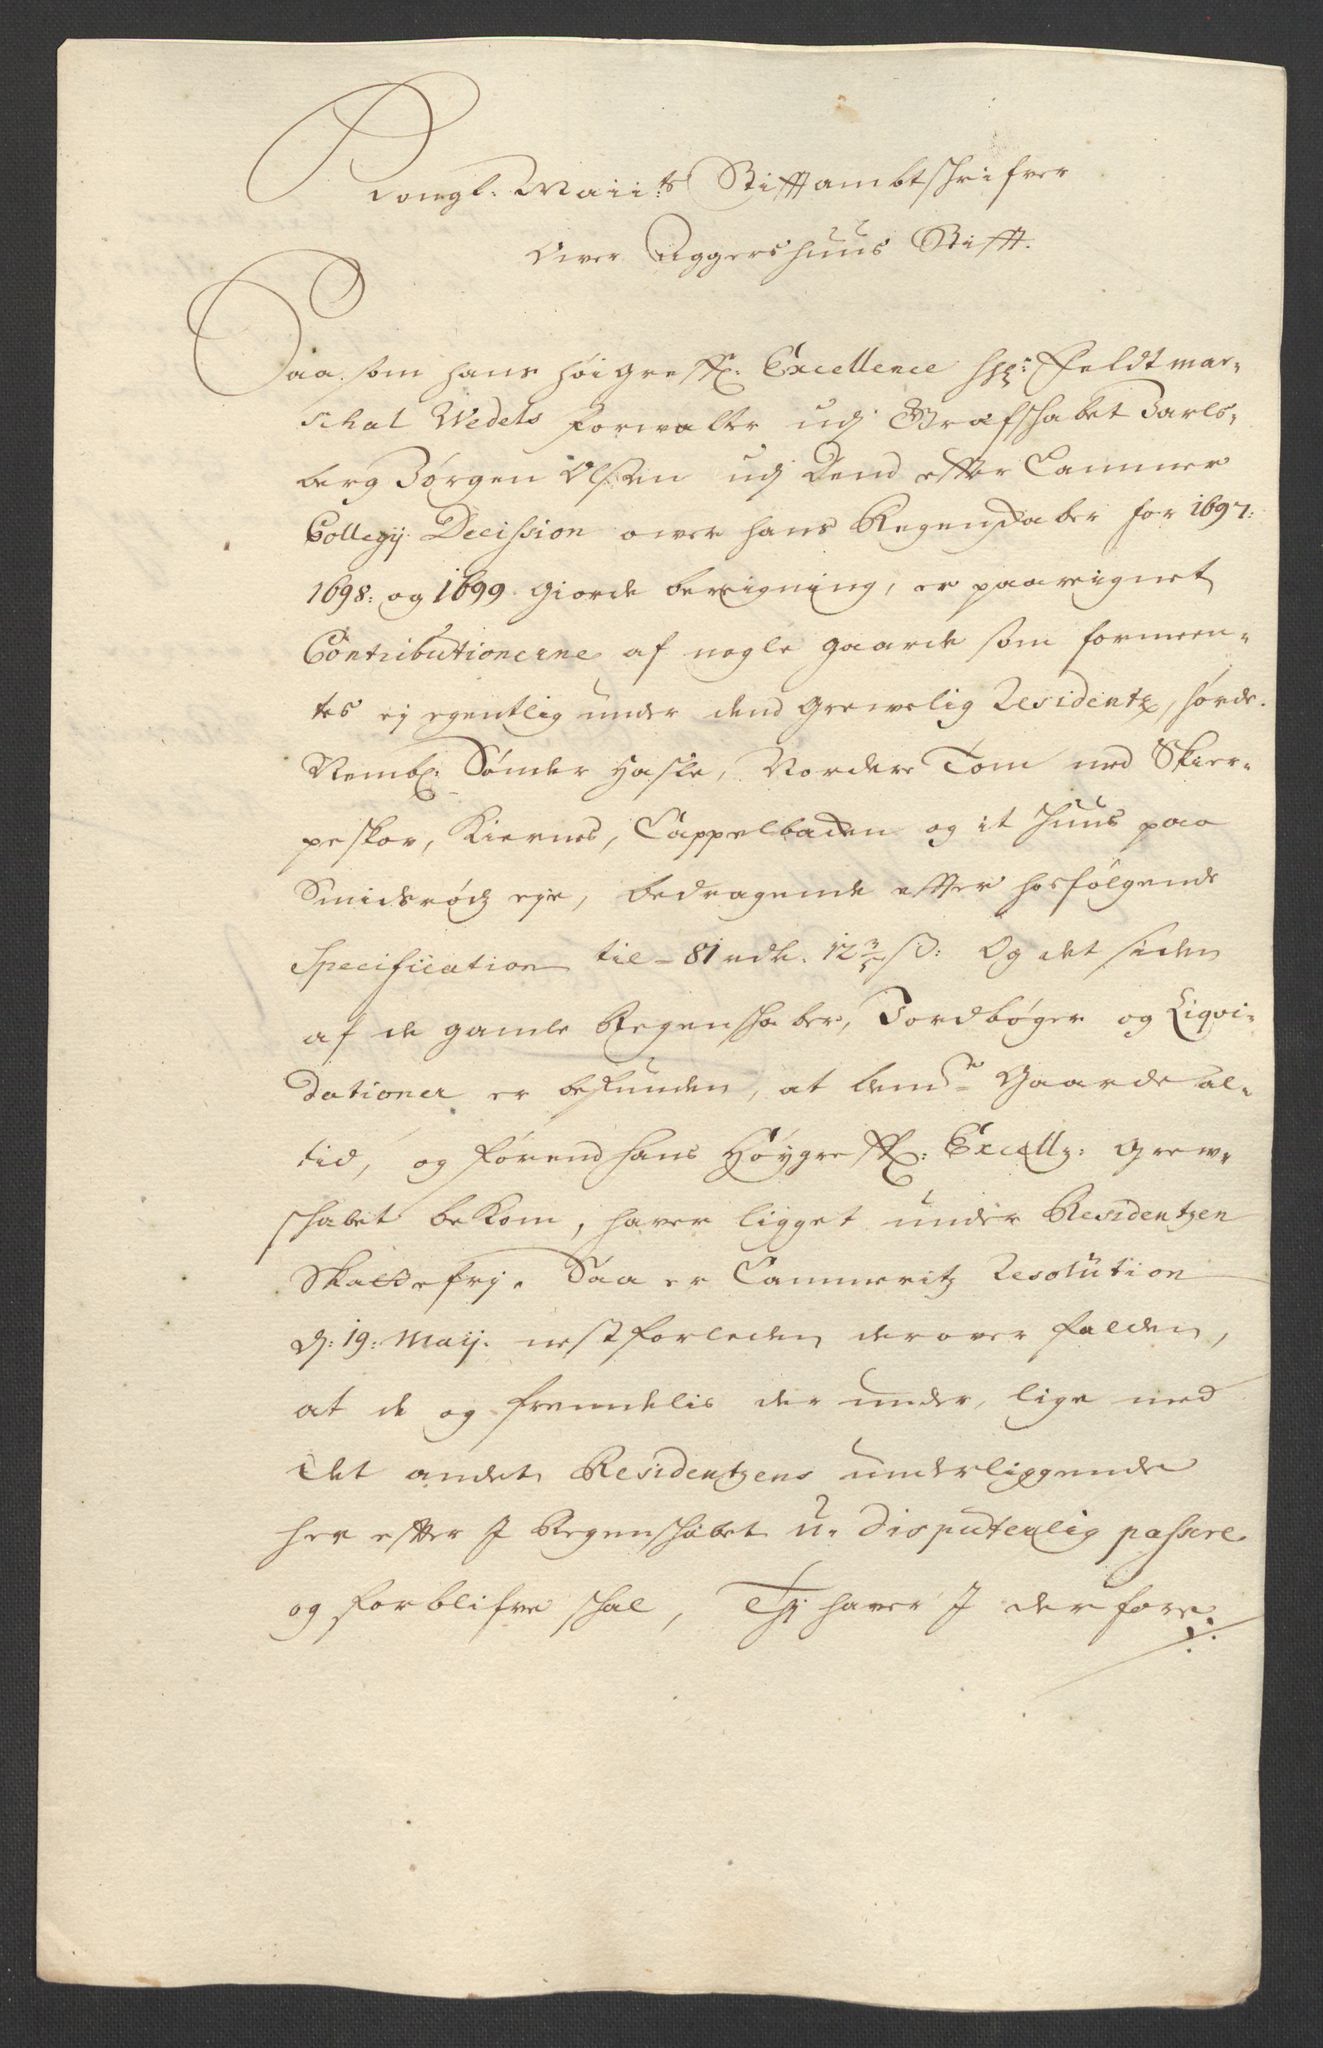 Kongl: Maii:ts Stifftambtschrifver
Over Aggershuus Stifft.
Saa som hans høigreffl: Excellence Hr: Feldtmar-
schal Wedels forwalter udj Grafschabet Jarls-
berg Jørgen Olsen udj Dend effter Cammer
Collegij Decission over hans Regenskaber for 1697:
1698: og 1699 giorde beregning, er paareignet
Contributionerne af nogle gaarde som formeen-
tes ej egentlig under dend grewelig Residentz, hørde.
Nembl: Sønder Hasle, Nordere Tom med Skier-
peskov, Kiernes, Cappelbacken og it Huus paa
Smidsrødz eye, bedragende effter hosfølgende
Specification til - 81 rdlr. 12 3/5 ß: Og det siden
af de gamle Regenschaber, Jordbøger og Liqvi-
dationer er befunden, at bemte Gaarde al-
tid, og førend hans Høygreffl: Excell: grew-
schabet bekom, haver ligget under Residentzen
Skattefrj. Saa er Cammeritz Resolution
d: 19: Maij. nestforleden derover falden,
at de og fremdelis der under, lige med
det andet Residentzens underliggende
her effter J Regenschabet u-disputerlig passere
og forblifve schal, Thj haver J derfore